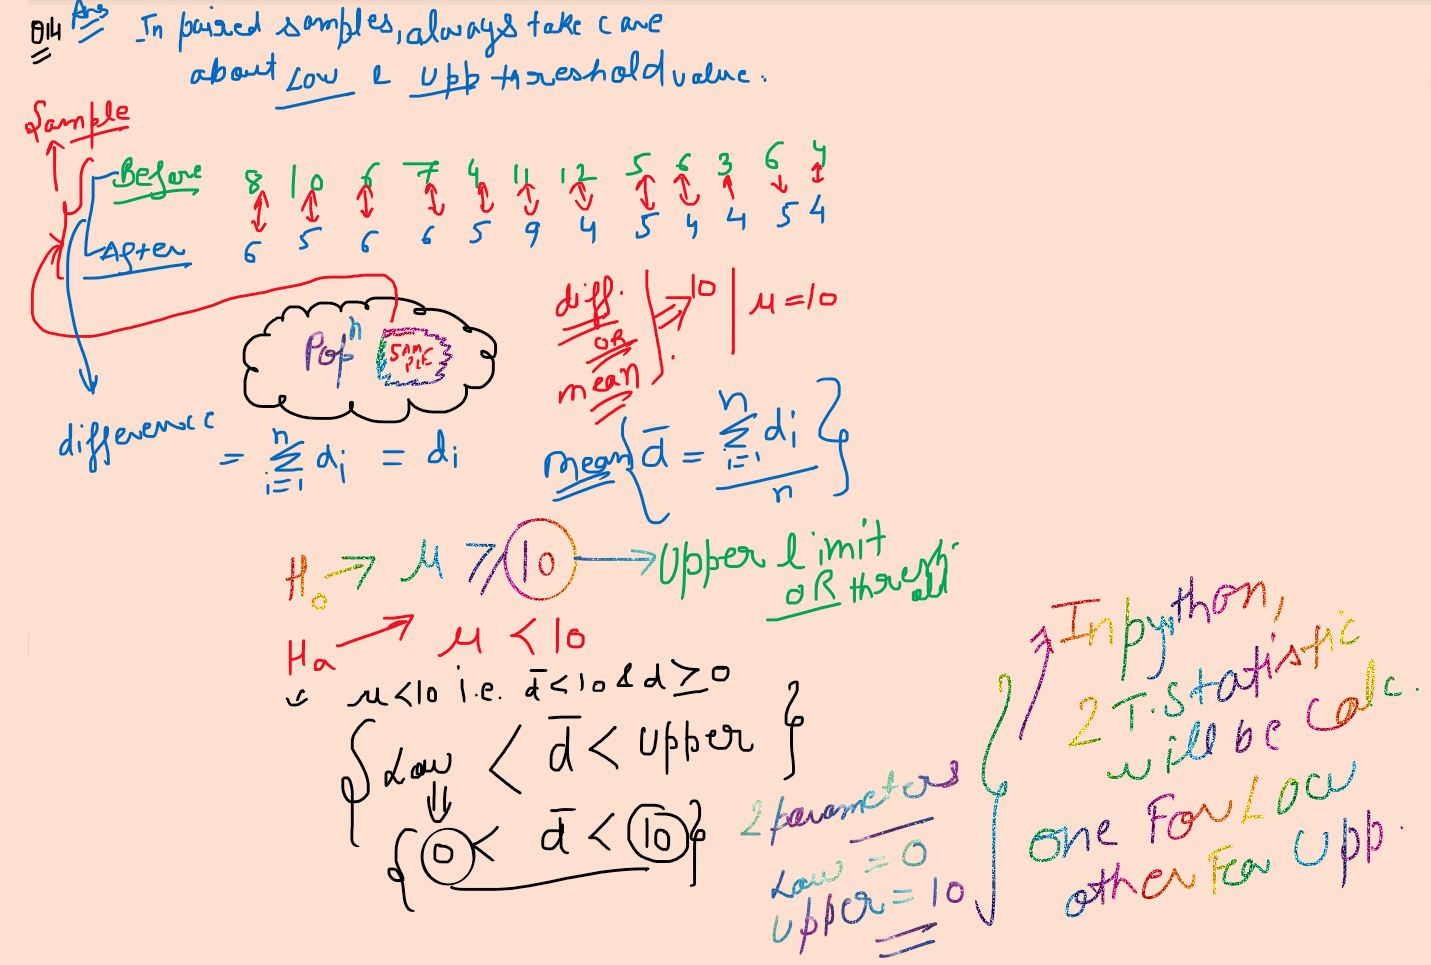 Q14 Ans In paired samples, always take care
about Low & Upp threshold value.
Sample
Before 8 10 6 7 4 11 12 5 6 3 6 4
After 6 5 6 6 5 9 4 5 4 4 5 4
Popn SAMPLE
diff. OR mean. => 10 | μ = 10
difference = n Σ i=1 di = di
mean { d̄ = n Σ i=1 di / n }
H0 → μ ≥ 10 → Upper limit
OR threshold
Ha → μ < 10
μ < 10 i.e. d̄ < 10 & d ≥ 0
{ Low < d̄ < Upper }
{ 0 < d̄ < 10 }
2 parameters
Low = 0
Upper = 10
In python,
2 T.Statistic
will be Calc.
one For Low
other For Upp.